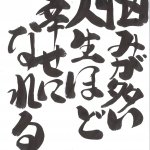 悩みが多い
人生ほど
幸せに
なれる